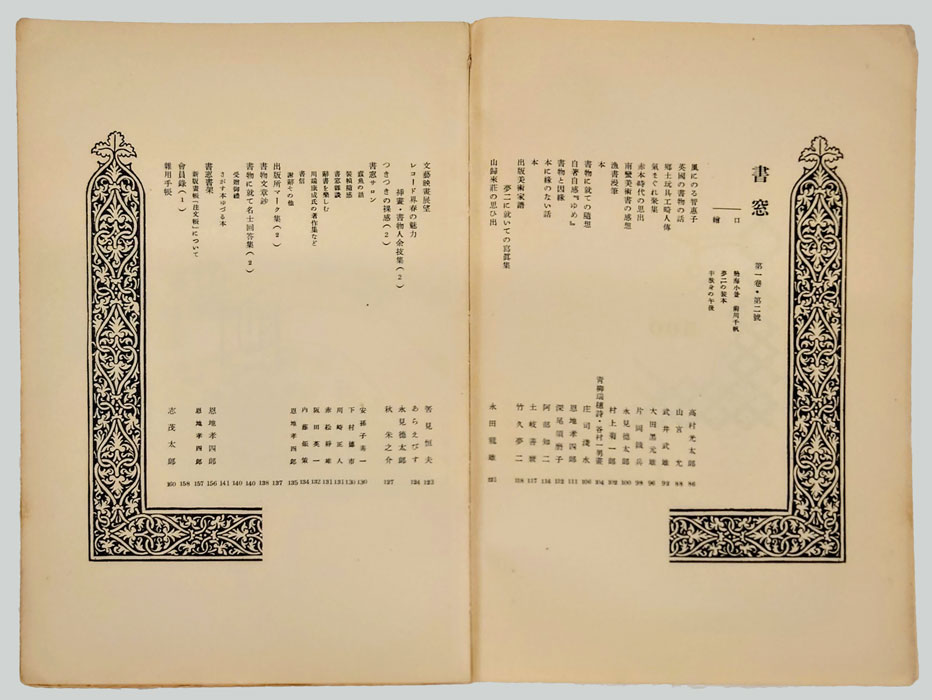 書窓
第一卷・第二號
口繪
夢二の裝本
風にのる智惠子 高村光太郎 86
英國の書物の話 山宮允 88
郷土玩具工畸人傳 武井武雄 93
氣まぐれ蒐集 大田黒元雄 96
赤本時代の思出 片岡鐵兵 98
南蠻美術書の感想 永見徳太郎 100
漁書漫筆 村上菊一郎 102
本 青柳瑞穗詩・谷村一男畫 104
書物に就ての隨想 庄司淺水 106
自著自感『ゆめ』 恩地孝四郎 111
書物と因縁 深尾須磨子 112
本に縁のない話 阿部知二 114
本 土岐善麿 117
出版美術家譜 竹久夢二 118
夢二に就いての寫眞集
山歸來莊の思ひ出 永田龍雄 121
文藝映畫展望 筈見恒夫 123
レコード界春の魅力 あらえびす 124
挿畫・書物人余技集(2) 永見徳太郎
つきつきの裸感(2) 秋朱之介 127
書窓サロン
蠹魚の話 安孫子嘉一 130
裝幀隨感 下村 130
書窓雜談 川崎正人 131
辭書を樂しむ 赤松靜雄 131
川端康成氏の著作集など 阪田英一 132
書信 内藤鋠策 134
謝辭その他 恩地孝四郎 135
出版所マーク集(2) 137
書物文章抄 138
書物に就て名士回答集(2) 140
受贈御禮 140
さがす本ゆづる本 141
書窓書架 恩地孝四郎 156
新版畫帳『注文帳』について 恩地孝四郎 157
會員錄(1) 158
雜用手帳 志茂太郎 160